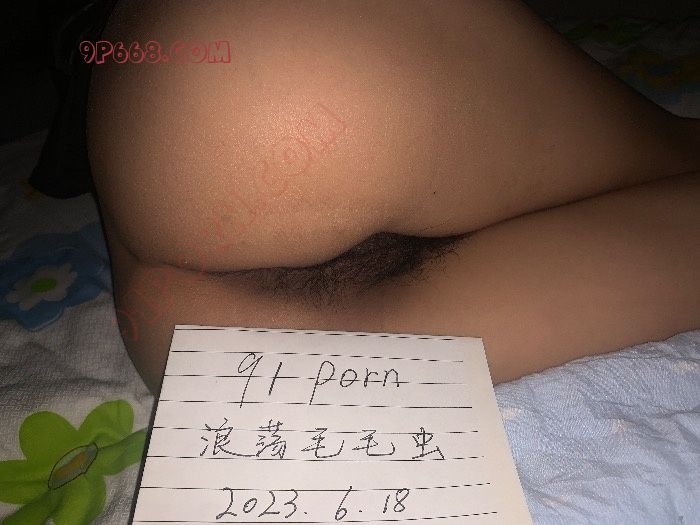 9P668.COM
91 porn
浪荡毛毛虫
2023.6.18